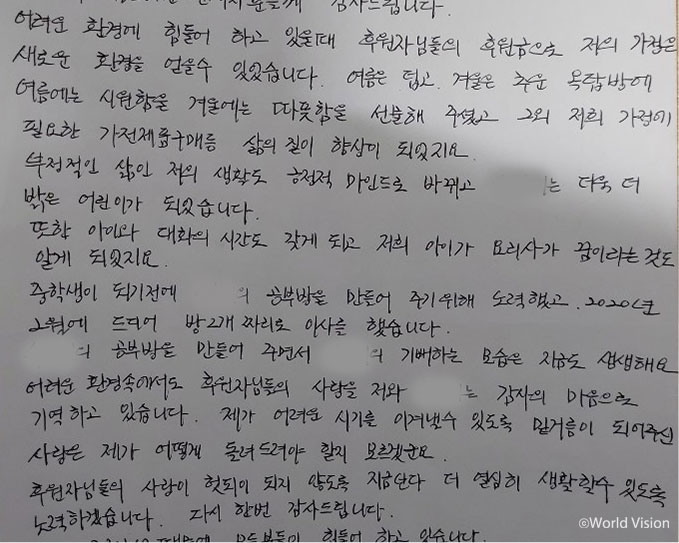 감사드립니다.
어려운 환경에 힘들어 하고 있을때 후원자님들의 후원금으로 저의 가정은
새로운 환경을 얻을수 있었습니다. 여름은 덥고, 겨울은 추운 옥탑방에
여름에는 시원함을 겨울에는 따뜻함을 선물해 주셨고 그외 저희 가정에
필요한 가전제품구매등 삶의 질이 향상이 되었지요.
부정적인 삶인 저의 생활도 긍정적 마인드로 바뀌고 는 더욱 더
밝은 어린이가 되었습니다.
또한 아이와 대화의 시간도 갖게 되고 저희 아이가 요리사가 꿈이라는것도
알게 되었지요.
중학생이 되기전에 의 공부방을 만들어 주기위해 노력했고. 2020년
2월에 드디어 방2개 짜리로 이사를 했습니다.
의 공부방을 만들어 주면서 의 기뻐하는 모습은 지금도 생생해요
어려운 환경속에서도 후원자님들의 사랑을 저와 는 감사의 마음으로
기억하고 있습니다. 제가 어려운 시기를 이겨낼수 있도록 밑거름이 되어주신
사랑은 제가 어떻게 돌려드려야 할지 모르겠군요.
후원자님들의 사랑이 헛되이 되지 않도록 지금보다 더 열심히 생활할수 있도록
노력하겠습니다. 다시 한번 감사드립니다.
힘들어 하고 있습니다.
©World Vision